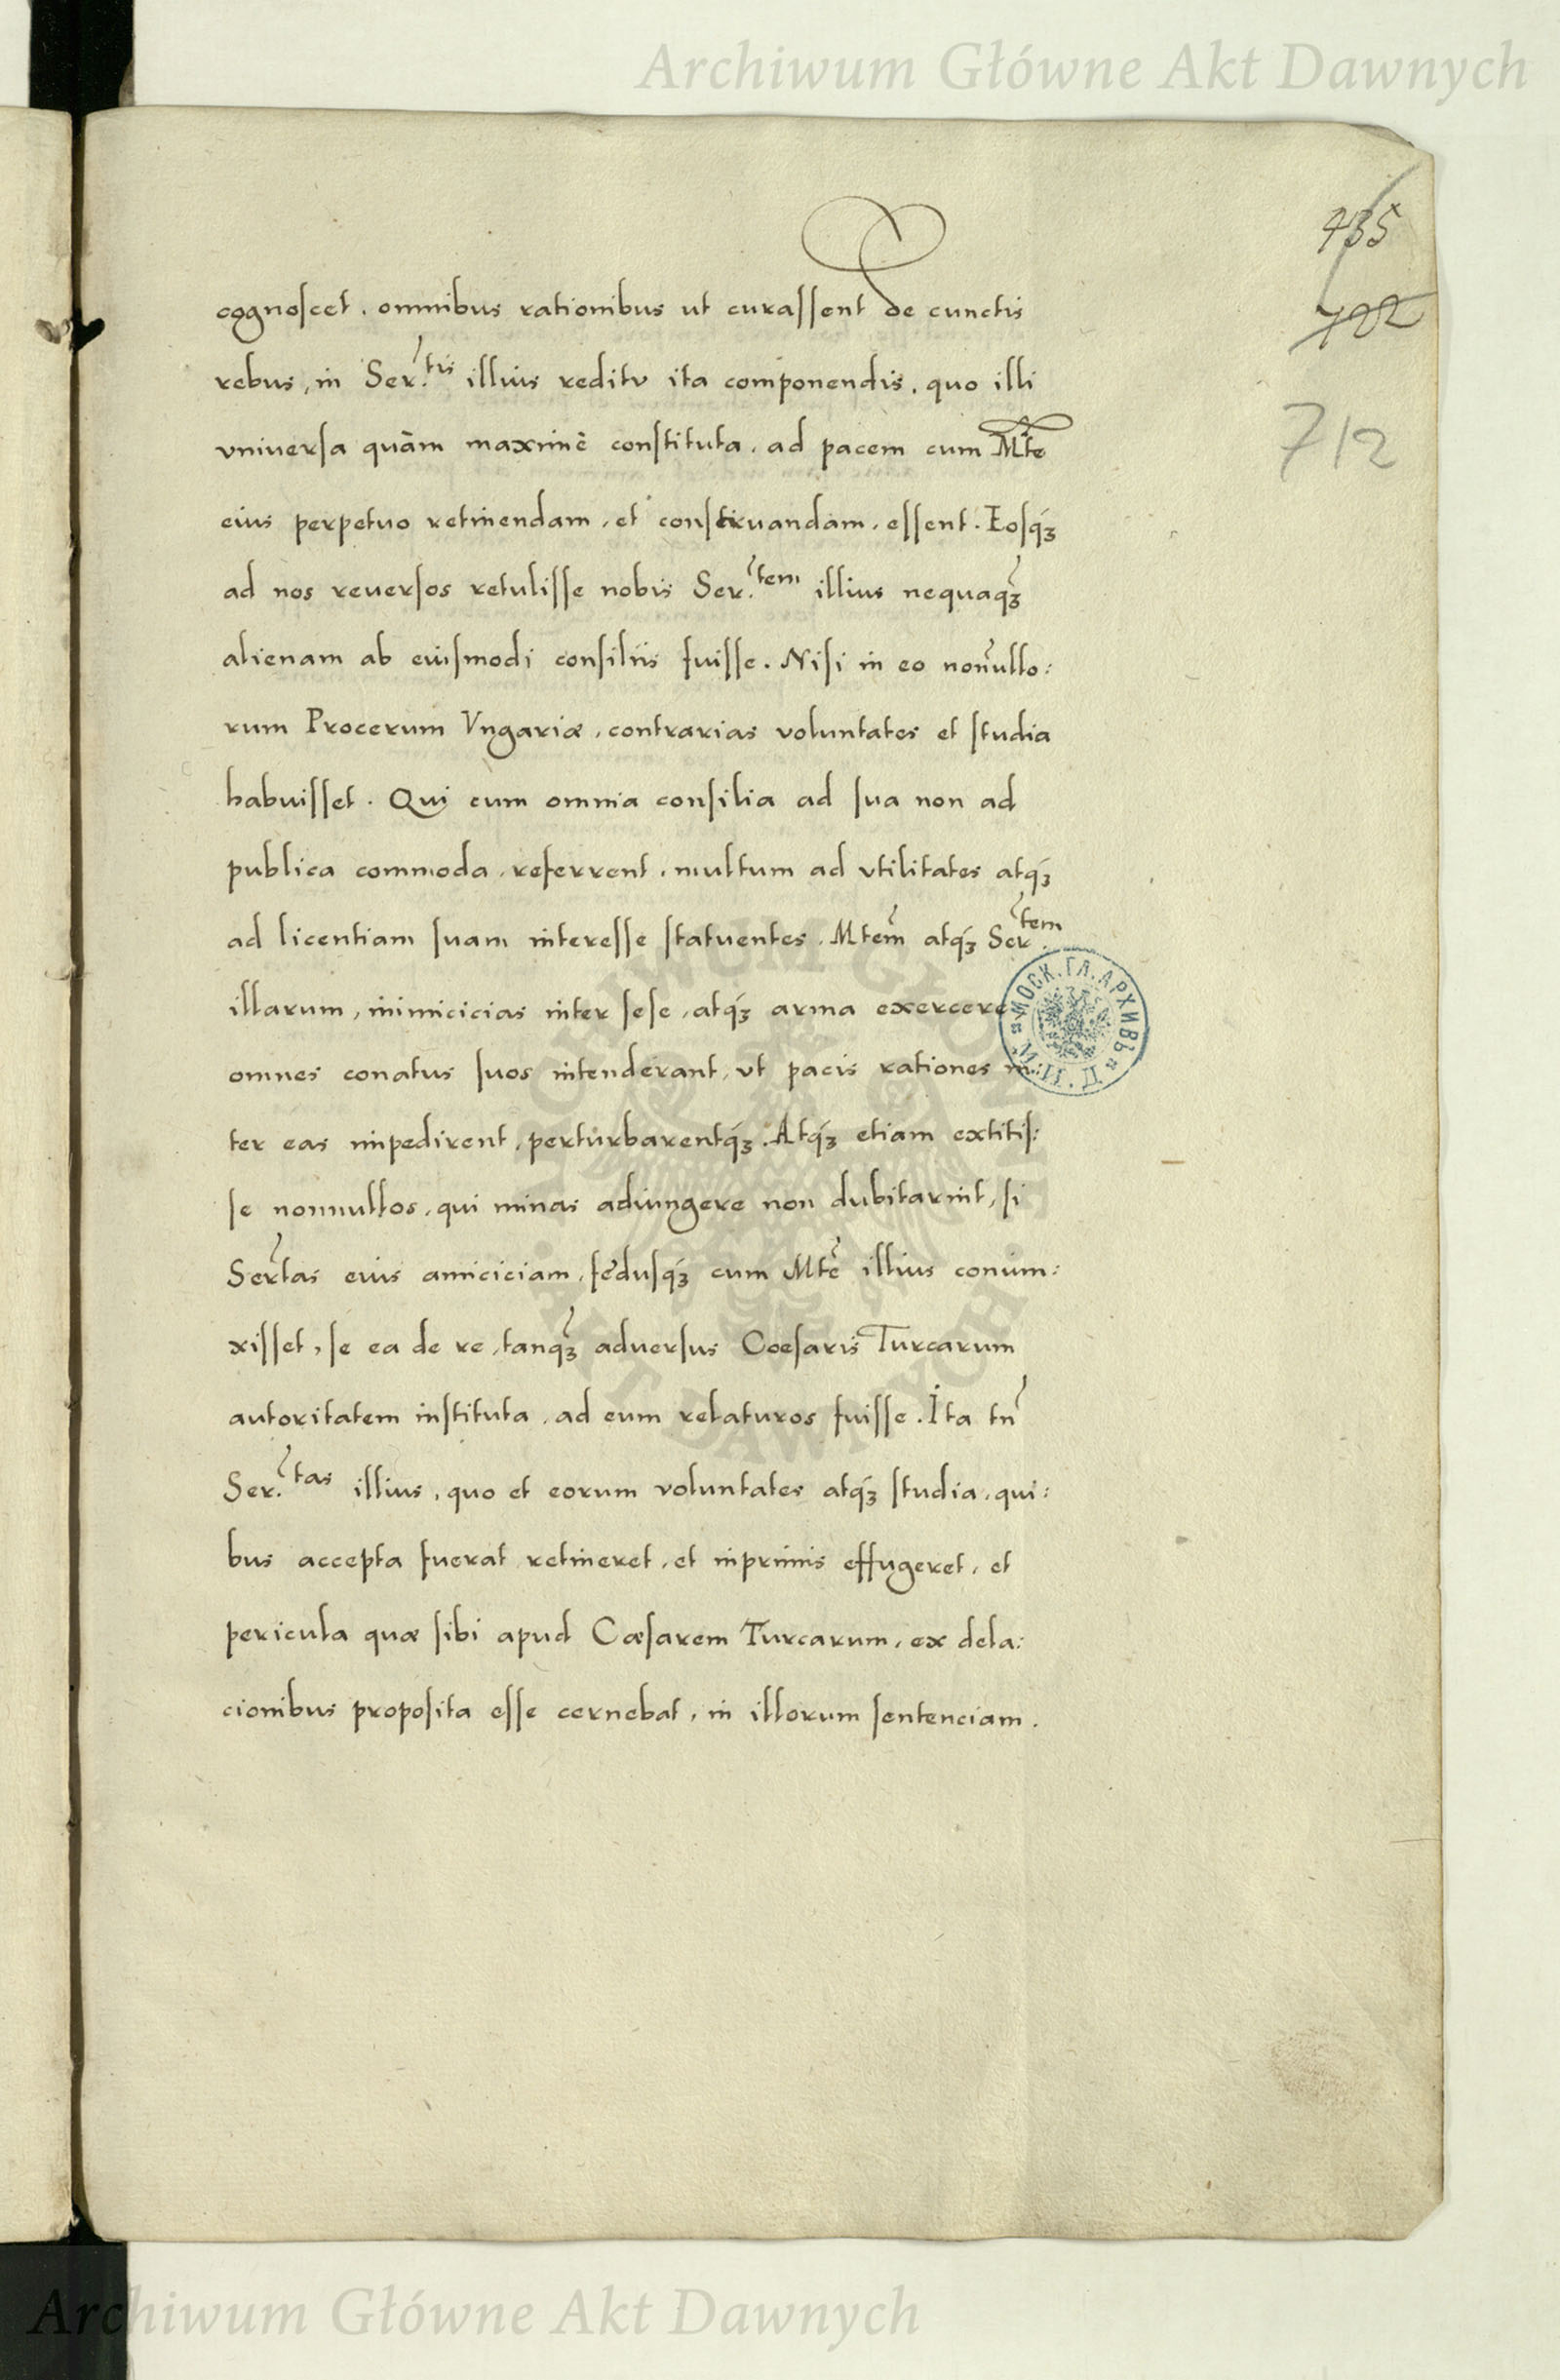 Archiwum Główne Akt Dawnych
435
722
712
cognoscet, omnibus rationibus ut curassent de cunctis
rebus, in Ser.tis illius reditu ita componendis, quo illi
vniuersa quàm maximè constituta, ad pacem cum Mte
eius perpetuo retinendam, et conseruandam, essent. Eosq́ꝫ
ad nos reuersos retulisse nobis Ser.tem illius nequaq̃ꝫ
alienam ab eiusmodi consiliis fuisse. Nisi in eo non̄ullo:
rum Procerum Vngariæ, contrarias voluntates et studia
habuisset. Qui cum omnia consilia ad sua non ad
publica commoda, referrent, multum ad vtilitates atq́ꝫ
ad licentiam suam interesse statuentes, Mtem̃ atq́ꝫ Ser.tem
illarum, inimicicias inter sese, atq́ꝫ arma exercere
omnes conatus suos intenderant, vt pacis rationes in:
ter eas impedirent, perturbarentq́ꝫ. Atq́ꝫ etiam extitis:
se nonnullos, qui minas adiungere non dubitarint, si
Ser̃tas eius amiciciam, fœdusq́ꝫ cum Mtẽ illius coniun:
xisset, se ea de re, tanq̃ꝫ aduersus Coesaris Turcarum
autoritatem instituta, ad eum relaturos fuisse. Ita tñ
Ser.tas illius, quo et eorum voluntates atq́ꝫ studia, qui:
bus accepta fuerat retineret, et inprimis effugeret, et
pericula quæ sibi apud Cæsarem Turcarum, ex dela:
cionibus proposita esse cernebat, in illorum sentenciam.
МОСК. ГЛ. АРХИВЪ М. И. Д.
ARCHIWUM GŁÓWNE AKT DAWNYCH
Archiwum Główne Akt Dawnych